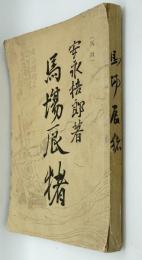 安永梧郎著
馬場辰猪
馬場辰猪